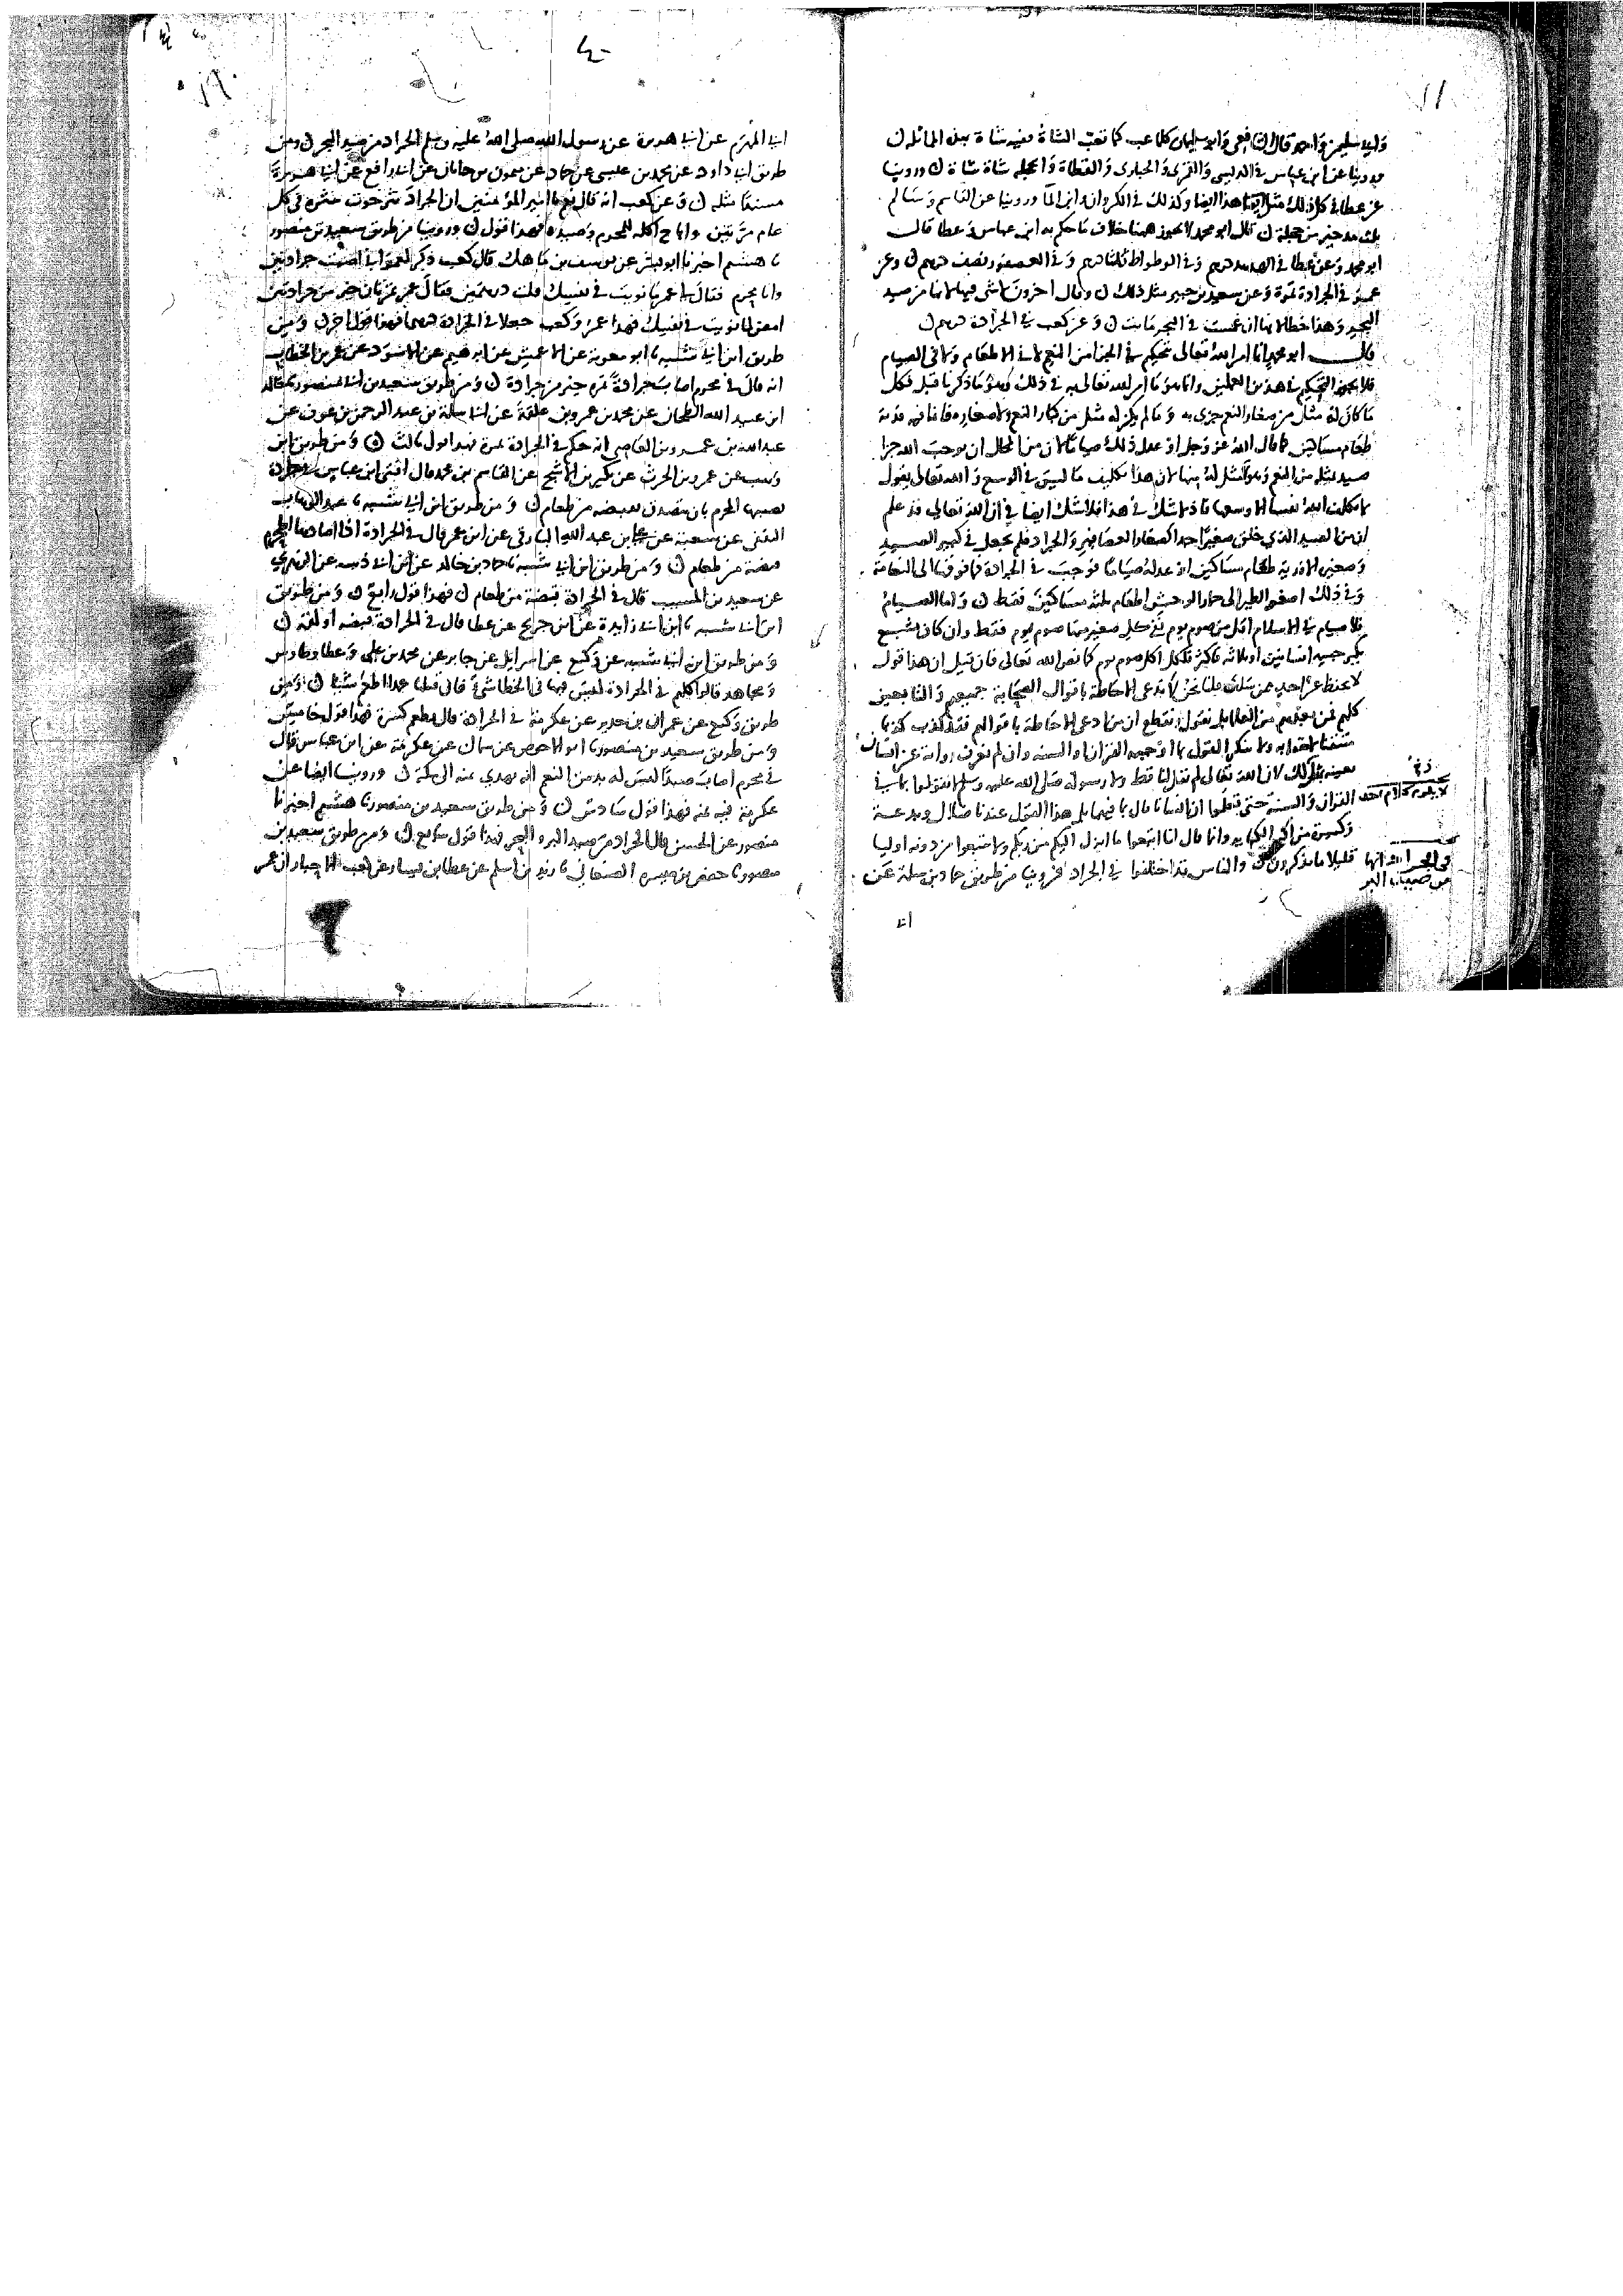 وابو سليمن واحمد قال الشافعي وابو سليمان كلما عب كما تعب الشاة ففيه شاة بهذه المماثلة
وروينا عن ابن عباس في الدبسي والقمري والحبارى والقطاة والحجلة شاة شاة وروينا
عن عطا في كل ذلك مثل ايضا وكذلك في الكروان وابن الما وروينا عن القاسم وسالم
ثلث مد خير من حجلة قال ابو محمد لا يجوز ههنا خلاف ما حكم به ابن عباس وعطا قال
ابو محمد وعن عطا في الهدهد درهم وفي الوطواط ثلثا درهم وفي العصفور نصف درهم وعن
عمر في الجرادة تمرة وعن سعيد بن جبير مثل ذلك وقال اخرون لا شي فيها لانها من صيد
البحر وهذا خطا لانها ان غمست في البحر ماتت وعن كعب في الجرادة درهم
قال ابو محمد انما امر الله تعالى بتحكيم في الجزا من النعم لا في الاطعام ولا في الصيام
فلا يجوز التحكيم في هذين العملين وانما هو ما امر الله تعالى به في ذلك وهو ما ذكرنا قبل فكل
ما كان له مثل من صغار النعم جزى به وما لم يكن له مثل من كبار النعم ولا صغاره فانما فيه فدية
طعام مساكين كما قال الله عز وجل او عدل ذلك صياما لان من المحال ان يوجب الله جزا
صيد بمثله من النعم وهو لا مثل له منها لان هذا تكليف ما ليس في الوسع والله تعالى يقول
لا يكلف الله نفسا الا وسعها فاذ لا شك في هذا فلا شك ايضا في ان الله تعالى قد علم
ان من الصيد الذي خلق صغيرا جدا كصغار العصافير والجراد فلم يجعل في كبير الصيد
وصغيره الا فدية طعام مساكين او عدله صياما فوجب في الجرادة فما فوقها الى النعامة
وفي ذلك اصغر الطير الى حمار الوحش اطعام ثلثة مساكين فقط واما الصيام
فلا صيام في الاسلام اقل من صوم يوم ففي كل صغير منها صوم يوم فقط وان كان يشبع
بكبر جسمه انسانين او ثلاثة فاكثر فلكل اكل صوم يوم كما نص الله تعالى فان قيل ان هذا قول
لا يحفظ عن احد ممن سلف قلنا نحن لا ندعي الاحاطة باقوال الصحابة جميعهم والتابعين
كلهم فمن بعدهم من العلما بل نقول نقطع ان من ادعى الاحاطة باقوالهم فقد كذب كذبا
متيقنا لا خفا به ولا ننكر القول بما اوجبه القران او السنة وان لم نعرف رواية عن انسان
بعينه بمثل ذلك لان الله تعالى لم يقل لنا قط ولا رسوله صلى الله عليه وسلم لا تقولوا بما في
القران والسنة حتى تعلموا ان انسانا قال بما فيهما بل هذا القول عندنا ضلال وبدعة
وكبيرة من اكبر الكباير وانما قال لنا اتبعوا ما انزل اليكم من ربكم ولا تتبعوا من دونه اوليا
قليلا ما تذكرون والناس قد اختلفوا في الجراد فروينا من طريق حماد بن سلمة عن
ابي
في الجراد انها
من صيد البر
ابي المهزم عن ابي هريرة عن رسول الله صلى الله عليه وسلم الجراد من صيد البحر ومن
طريق ابي داود عن محمد بن عيسى عن حماد عن ميمون بن جابان عن ابي رافع عن ابي هريرة
مسندا مثله وعن كعب انه قال لعمر يا امير المؤمنين ان الجراد نثر حوت ينثره في كل
عام مرتين واباح اكله للمحرم وصيده فهذا قول وروينا من طريق سعيد بن منصور
نا هشيم اخبرنا ابو بشر عن يوسف بن ماهك قال كعب ذكر لعمر اني اصبت جرادتين
وانا محرم فقال لي عمر ما نويت في نفسك قلت درهمين فقال عمر تمرتان خير من جرادتين
امض لما نويت في نفسك فهذا عمر وكعب جعلا في الجرادة درهما فهذا قول اخر ومن
طريق ابن ابي شيبه نا ابو معوية عن الاعمش عن ابرهيم عن الاسود عن عمر بن الخطاب
انه قال في محرم اصاب جرادة تمرة خير من جرادة ومن طريق سعيد بن منصور نا خالد
ابن عبد الله الطحان عن محمد بن عمرو بن علقمة عن ابي سلمة بن عبد الرحمن بن عوف عن
عبد الله بن عمرو بن العاصي انه حكم في الجرادة تمرة فهذا قول ثالث ومن طريق ابن
وهب عن عمرو بن الحرث عن بكير بن الاشج عن القاسم بن محمد قال افتى ابن عباس في جرادة
يصيبها المحرم بان يتصدق بقبضة من طعام ومن طريق ابن ابي شيبه نا عبد الوهاب
الثقفي عن شعبة عن علي بن عبد الله البارقي عن ابن عمر قال في الجرادة اذا اصابها المحرم
قبضة من طعام ومن طريق ابن ابي شيبه نا حماد بن خالد عن ابن ابي ذيب عن الزهري
عن سعيد بن المسيب قال في الجرادة قبضة من طعام فهذا قول رابع ومن طريق
ابن ابي شيبه نا ابن ابي زايدة عن ابن جريج عن عطا قال في الجرادة قبضة او لقمة
ومن طريق ابن ابي شيبه عن وكيع عن اسرايل عن جابر عن محمد بن علي وعطا وطاوس
ومجاهد قالوا كلهم في الجرادة ليس فيها في الخطا شي فان قتلها عمدا اطعم شيا ومن
طريق وكيع عن عمران بن حدير عن عكرمة في الجرادة قال يطعم كسرة فهذا قول خامس
ومن طريق سعيد بن منصور نا ابو الاحوص عن سماك عن عكرمة عن ابن عباس قال
في محرم اصاب صيدا ليس له بد من النعم انه يهدي ثمنه الى مكة وروينا ايضا عن
عكرمة فيه ثمنه فهذا قول سادس ومن طريق سعيد بن منصور نا هشيم اخبرنا
منصور عن الحسن قال الجراد من صيد البر والبحر فهذا قول سابع ومن طريق سعيد بن
منصور نا حفص بن ميسرة الصنعاني نا زيد بن اسلم عن عطا بن يسار عن كعب الاحبار ان عمر